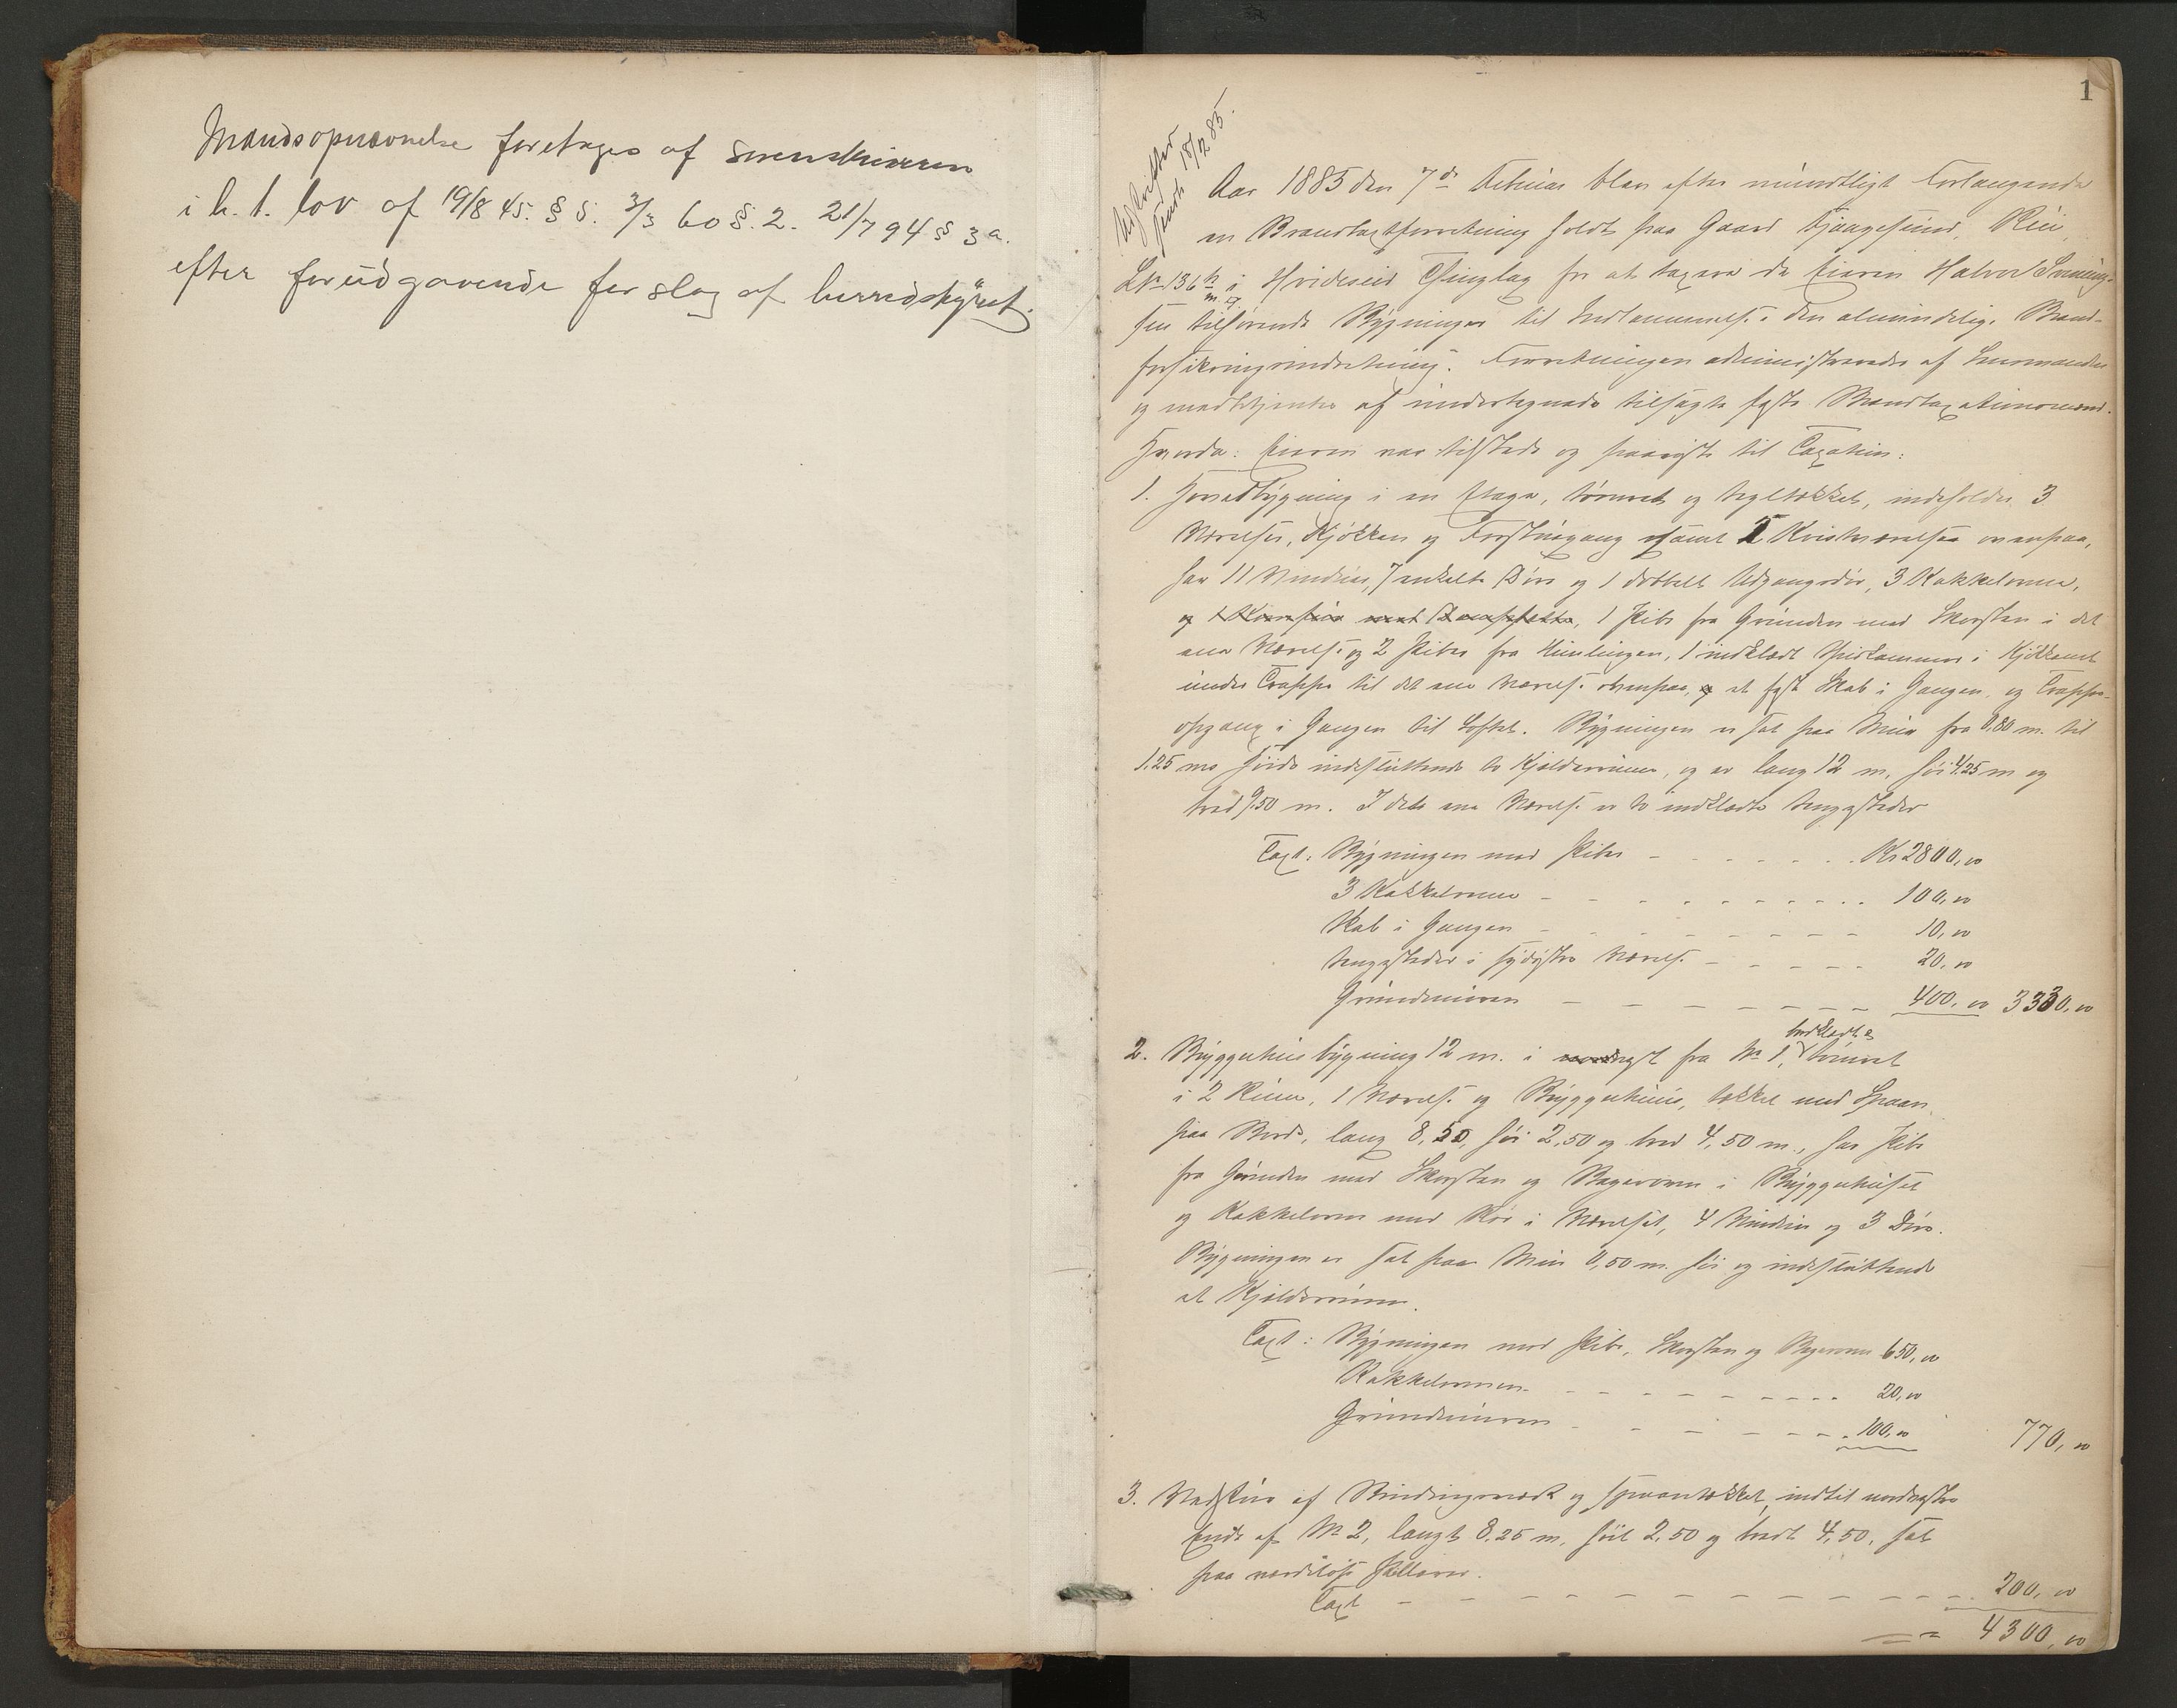 Mandsopnævnelse foretages af sorenskriveren
i h. t. lov af 19/8 45. § 5. 3/3 60 §. 2. 21/7 94 § 3 a.
efter forudgaaende forslag af herredstyret.
1
Udskrifter
sendt 18/2 85.
Aar 1885 den 7de Februar blev efter mundtligt Forlangende
en Brandtaxtforretning holdt paa Gaard Kjaagesund,
LNr 136 i Hvideseid Thinglag for at taxere de Eieren Halvor
sen tilhørende Bygninger til Indlemmelse i den almindelige Brand-
forsikringsindretning. Forretningen administreredes af Lensmanden
og medbetjentes af undertegnede tilsagte faste Brandtaxationsmænd.
Hvorda: Eieren var tilstede og paaviste til Taxation:
1. Hovedbygning i en Etage, tømret og tegltækket, indeholder 3
Værelser, Kjøkken og Forstuegang samt 2 Kvistværelser ovenpaa,
har 11 Vinduer, 7 enkelte Døre og 1 dobbelt Udgangsdør, 3 Kakkelovne,
og 1 Komfur med, 1 Pibe fra Grunden med Skorsten i det
ene Værelse og 2 Piber fra Himlingen, 1 indklædt Spidskammer i Kjøkkenet
under Trappe til det ene Værelse ovenpaa, og et fast Skab i Gangen, og Trappe-
opgang i Gangen til Loftet. Bygningen er sat paa Mur fra 0,80 m. til
1.25 ms Høide indesluttende to Kjelderrum, og er lang 12 m, høi 4.25 m og
bred 7.50 m. I det ene Værelse er to indklædte Sengesteder
Taxt: Bygningen med Piber - - - - - - Kr 2800,00
3 Kakkelovne - - - - - - - - - 100,00
Skab i Gangen - - - - - - - - 10,00
Sengesteder i sydøstre Værelse - - - - - 20,00
Grundmuren - - - - - - - 400,00 3330,00
indklædt &
2. Bryggerhusbygning 12 m. i nordvest fra No 1, tømret
i 2 Rum, 1 Værelse og Bryggerhus, tækket med Spaan
paa Bord, lang 8,50, høi 2,50 og bred 4,50 m., har Pibe
fra Grunden med Skorsten og Bagerovn i Bryggerhuset
og Kakkelovn med Rør i Værelset, 4 Vinduer og 3 Døre.
Bygningen er sat paa Mur 0,50 m. høi og indesluttende
et Kjelderrum.
Taxt: Bygningen med Pibe, Skorsten og Bagerovn 650,00
Kakkelovnen - - - - - - - - 20,00
Grundmuren - - - - - - - 100,00 770,00
3. Vedskur af Bindingsværk og spaantækket, indtil nordvestre
Ende af No 2, langt 8.25 m, høit 2,50 og bredt 4,50, sat
paa værdiløse Pillarer.
Taxt - - - - - - - - - - - 200,00
= 4300,00